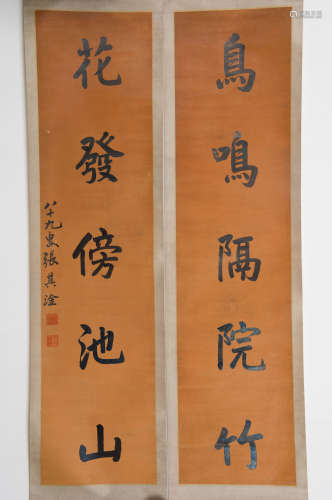 鳥鳴隔院竹
花發傍池山
八十九叟張其淦